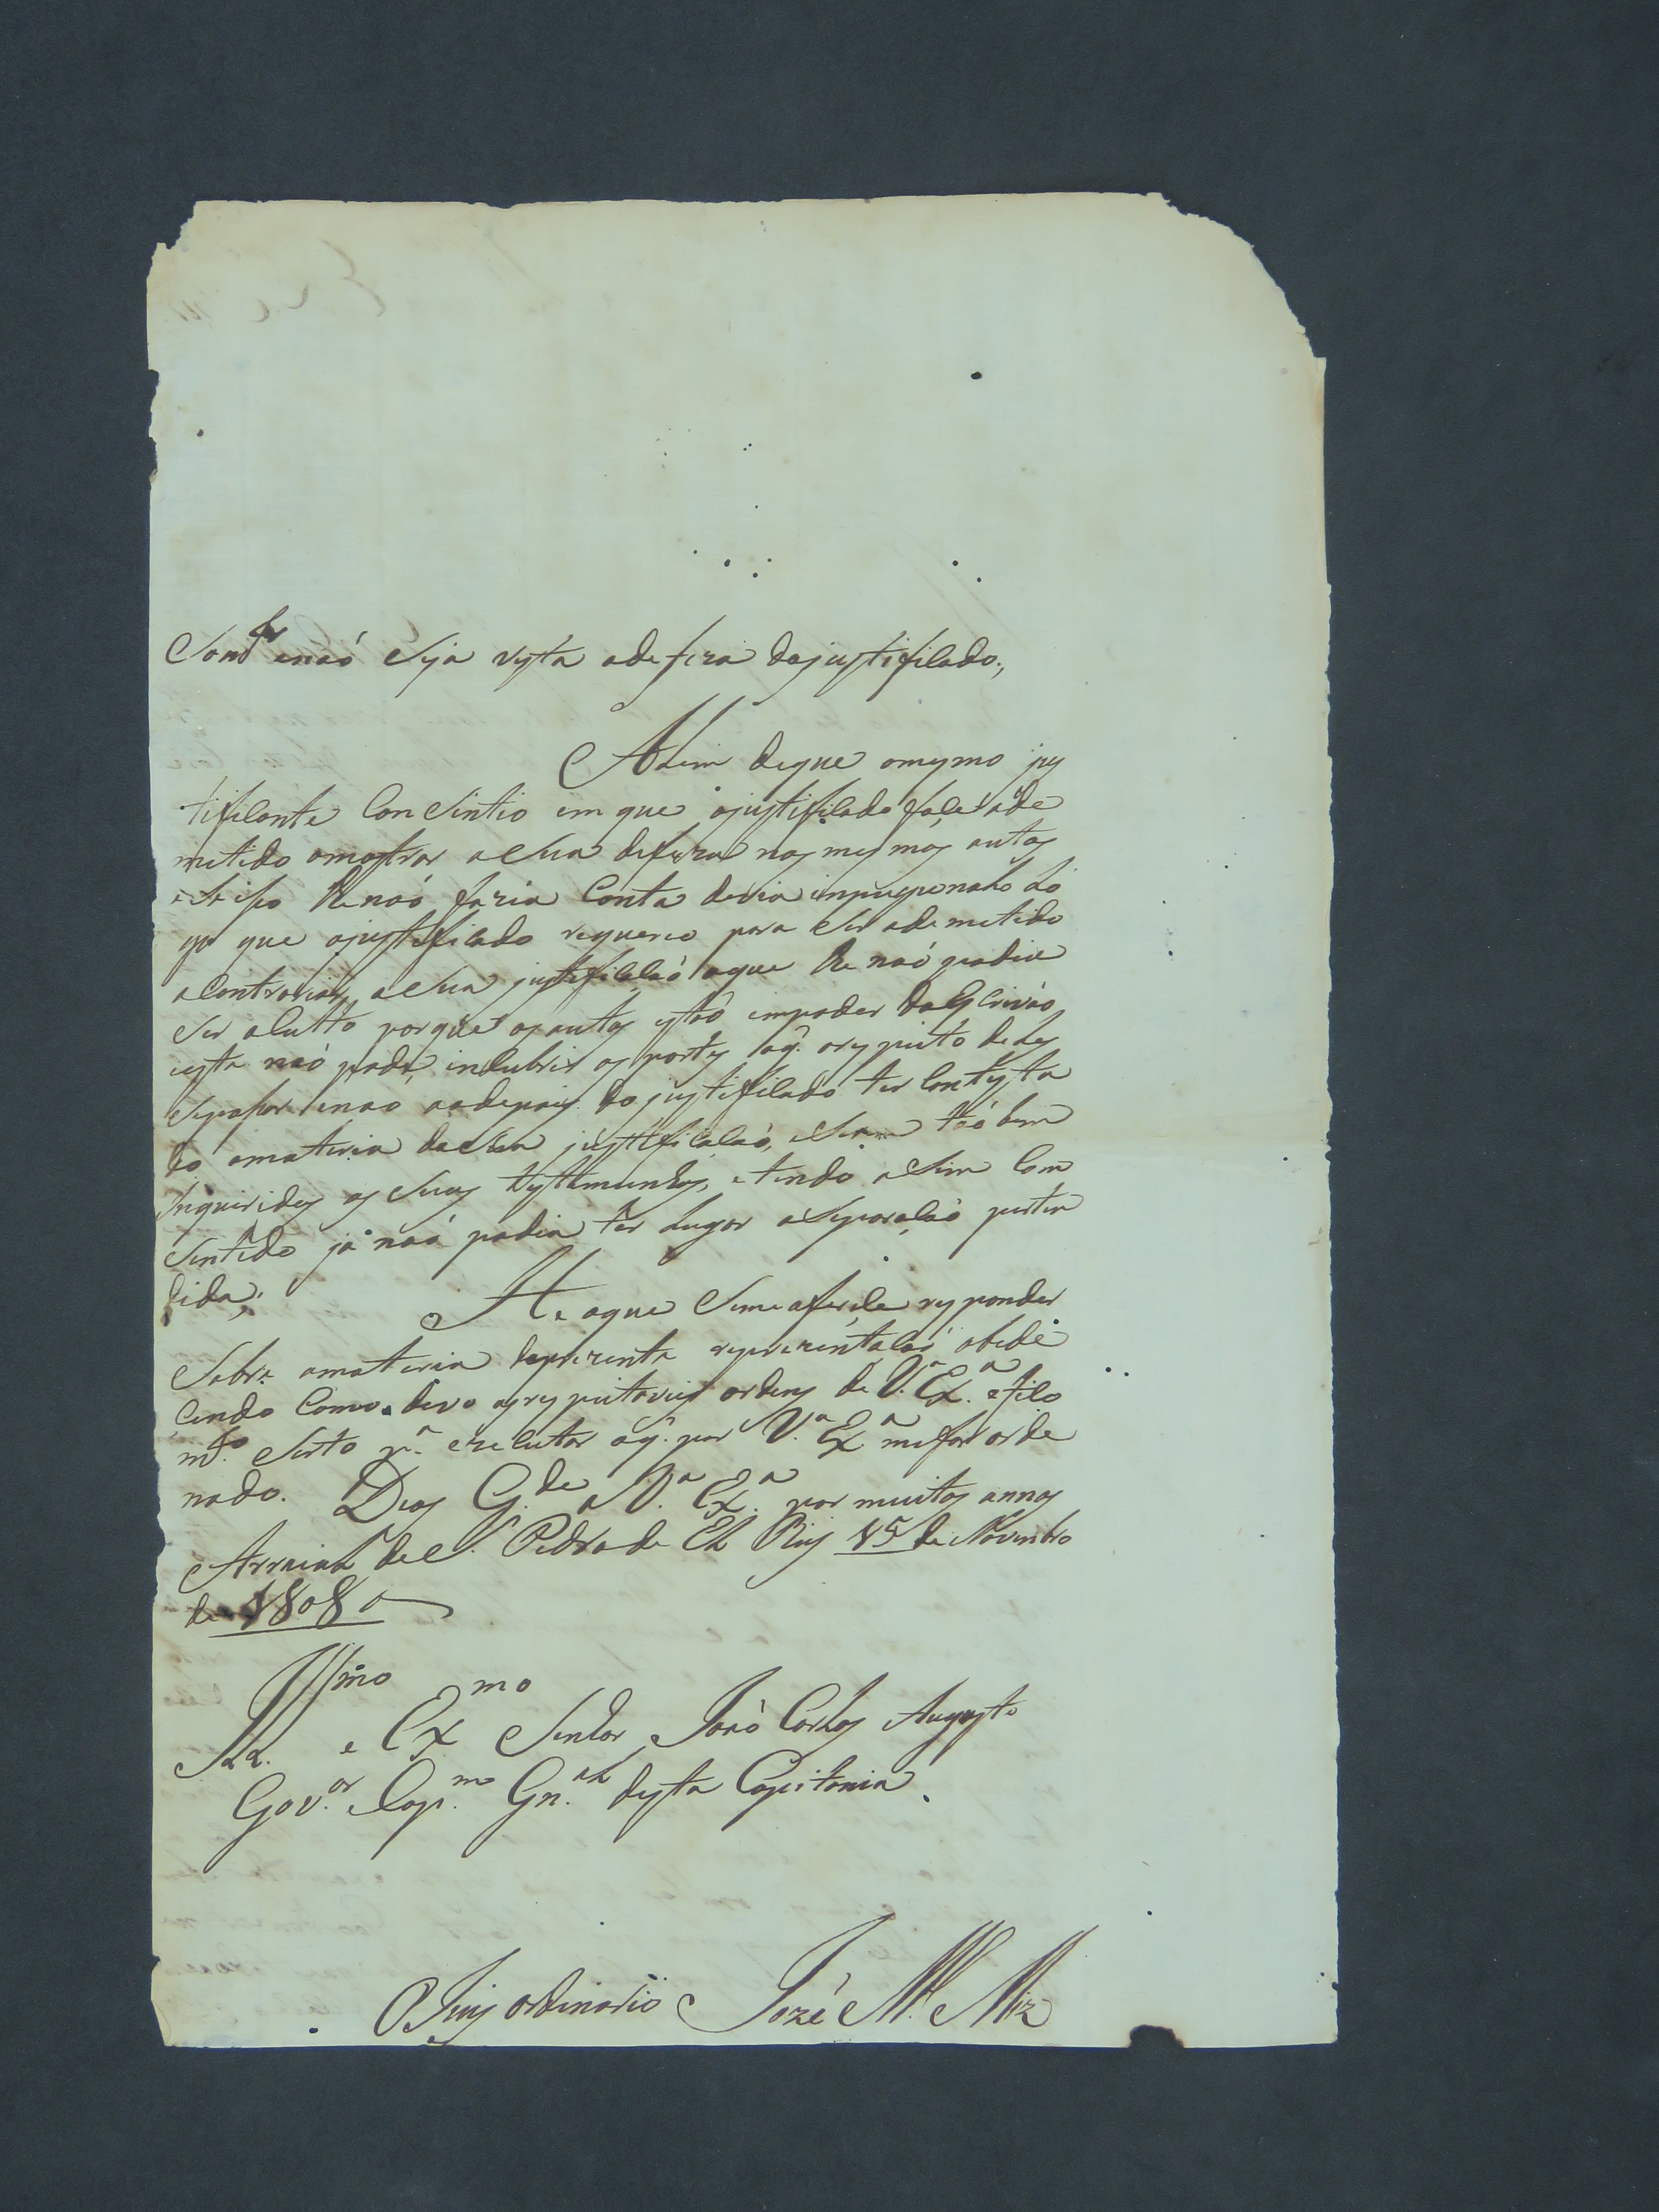 Som.te enaó Seja vysta adefeza dojustificado;
Alem deque omesmo jus
tificante Concintio em que ojustificado foçe ade
metido amostrar aSua defeza nos mesmos autos
e Se iso lhe naó fazia Conta devia impugnalo Lo
go que ojustificado requereo para Ser ademetido
aContrariar aSua justificaçaó aque lhe naó podia
Ser aCutto porque os autos estaó empoder do Escrivaó
eesta naó pode, incubrir as partes oq. orespeito deLes
Sepasar enao aodepois do justificado ter Contesta
do amateria daSua justificaçaó, eSerem taó bem
Inqueridas as Suas testemunhas, etendo aSim Com
Sentido já naó podia ter Lugar aSeparaçaó perten
dida;
He oque Semeoferece responder
Sobre amateria daprezente reprezentaçaó obede
cendo Como devo asrespeitaveis ordens de V.a Ex.a efico
m.to Serto p.a ezecutar oq. por V.a Ex.a mefor orde
nado. Deos G.de a V.a Ex.a por muitos annos
Arraial de S. Pedro de El Rey 15 de Novembro
de 1808
Ill.mo e Ex.mo Senhor Joaó Carlos Augusto
Gov.or e Cap.m Gn.al desta Capitania.
O Juis ordinario Jozé M.el Miz